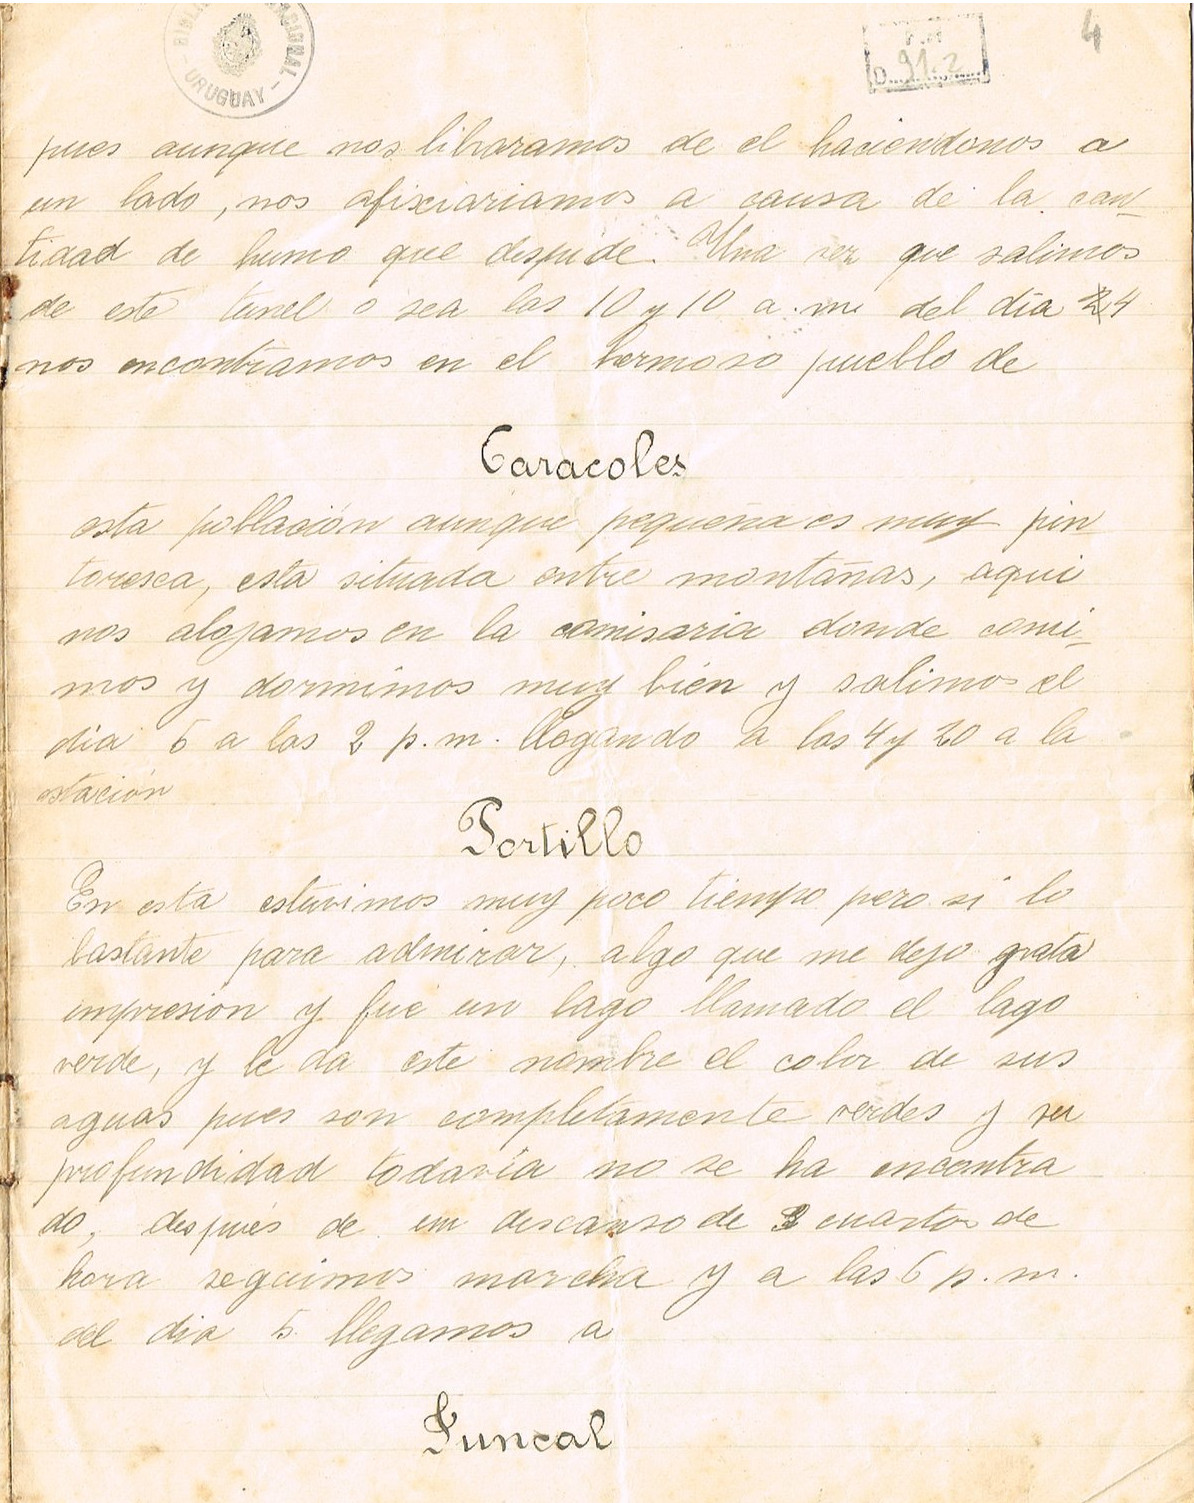 BIBLIOTECA NACIONAL - URUGUAY -
D. 91.2
4
pues aunque nos libraramos de el haciendonos a
un lado, nos afixiariamos a causa de la can-
tidad de humo que despide. Una vez que salimos
de este tunel o sea las 10 y 10 a. m. del día 4
nos encontramos en el hermoso pueblo de
Caracoles
esta población aunque pequeña es muy pin
toresca, esta situada entre montañas, aqui
nos alojamos en la comisaria donde comi-
mos y dormimos muy bién y salimos el
dia 5 a las 2 p. m. llegando a las 4 y 20 a la
estación
Portillo
En esta estuvimos muy poco tiempo pero si lo
bastante para admirar, algo que me dejo grata
impresion y fué un lago llamado el lago
verde, y le da este nombre el color de sus
aguas pues son completamente verdes y su
profundidad todavía no se ha encontra
do, después de un descanso de 3 cuartos de
hora seguimos marcha y a las 6 p. m.
del dia 5 llegamos a
Juncal